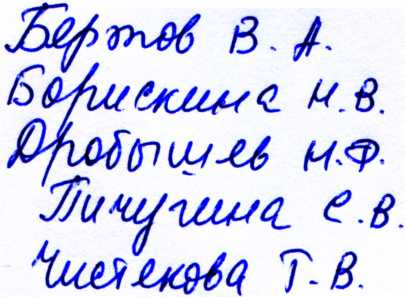 Бертов В. А.
Борискина Н.В.
Дробышев Н.Ф.
Пичугина С.В.
Чистякова Т.В.